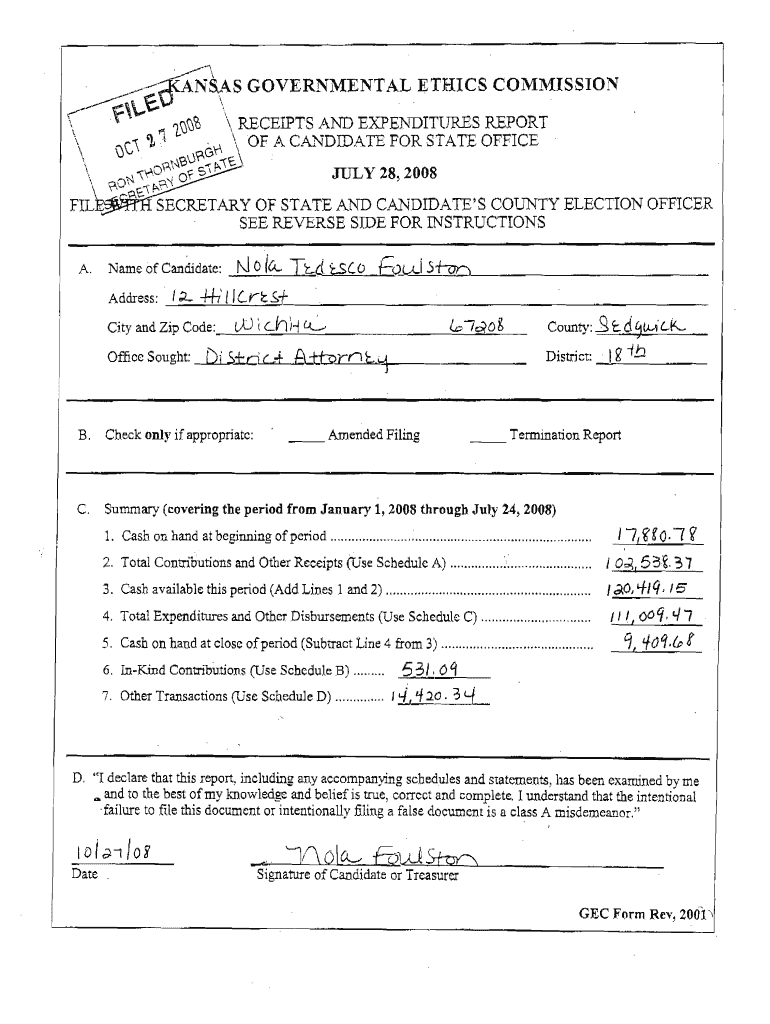 KANSAS GOVERNMENTAL ETHICS COMMISSION
FILED
OCT 27 2008
RON THORNBURGH
SECRETARY OF STATE
RECEIPTS AND EXPENDITURES REPORT
OF A CANDIDATE FOR STATE OFFICE
JULY 28, 2008
FILE WITH SECRETARY OF STATE AND CANDIDATE'S COUNTY ELECTION OFFICER
SEE REVERSE SIDE FOR INSTRUCTIONS
A. Name of Candidate: Nola Tedesco Foulston
Address: 12 Hillcrest
City and Zip Code: Wichita 67208 County: Sedgwick
Office Sought: District Attorney District: 18th
B. Check only if appropriate: ____ Amended Filing ____ Termination Report
C. Summary (covering the period from January 1, 2008 through July 24, 2008)
1. Cash on hand at beginning of period .......... 17,880.78
2. Total Contributions and Other Receipts (Use Schedule A) .......... 102,538.37
3. Cash available this period (Add Lines 1 and 2) .......... 120,419.15
4. Total Expenditures and Other Disbursements (Use Schedule C) .......... 111,009.47
5. Cash on hand at close of period (Subtract Line 4 from 3) .......... 9,409.68
6. In-Kind Contributions (Use Schedule B) ......... 531.09
7. Other Transactions (Use Schedule D) .............. 14,420.34
D. "I declare that this report, including any accompanying schedules and statements, has been examined by me
and to the best of my knowledge and belief is true, correct and complete. I understand that the intentional
failure to file this document or intentionally filing a false document is a class A misdemeanor."
10/27/08 Nola Foulston
Date Signature of Candidate or Treasurer
GEC Form Rev, 2001